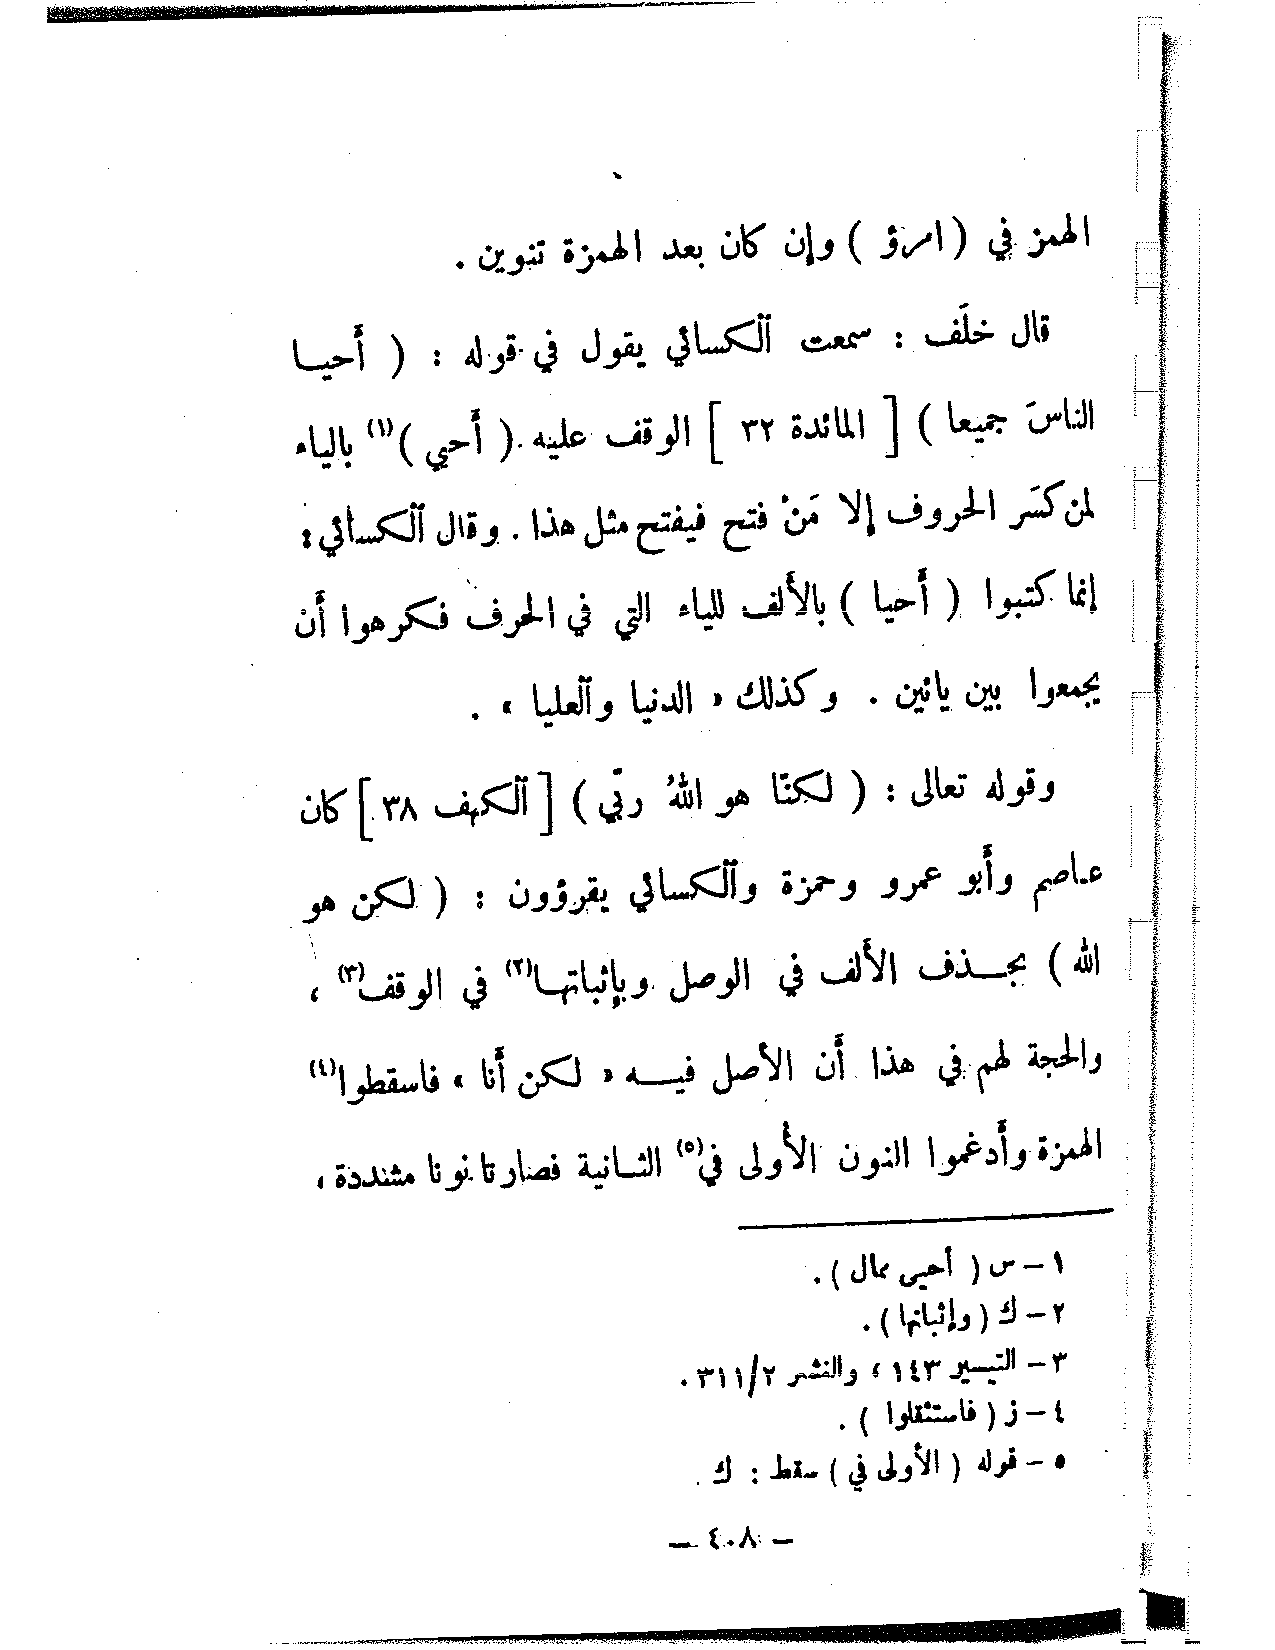 الهمز في ( امرؤ ) وإن كان بعد الهمزة تنوين .
قال خلَف : سمعت ٱلكسائي يقول في قوله : ( أحيـا
الناسَ جميعا ) [ المائدة ٣٢ ] الوقف عليه ( أحيي )(١) بالياء
لمن كسَر الحروف إلا مَنْ فتح فيفتح مثل هذا . وقال ٱلكسائي :
إنما كتبوا ( أحيا ) بالألف للياء التي في الحرف فكرهوا أن
يجمعوا بين يائين . وكذلك « الدنيا وٱلعليا » .
وقوله تعالى : ( لكنّا هو اللهُ ربّي ) [ ٱلكهف ٣٨ ] كان
عـاصم وأبو عمرو وحمزة وٱلكسائي يقرؤون : ( لكن هو
الله ) بحـذف الألف في الوصل وبإثباتهـا(٢) في الوقف(٣) ،
والحجة لهم في هذا أن الأصل فيـه « لكن أنا » فاسقطوا(٤)
الهمزة وأدغموا النون الأولى في(٥) الثـانية فصارتا نونا مشددة ،
١ – س ( أحيى ممال ) .
٢ – ك ( وإثباتها ) .
٣ – التيسير ١٤٣ ، والنشر ٣١١/٢ .
٤ – ز ( فاستثقلوا ) .
٥ – قوله ( الأولى في ) سقط : ك .
– ٤٠٨ –